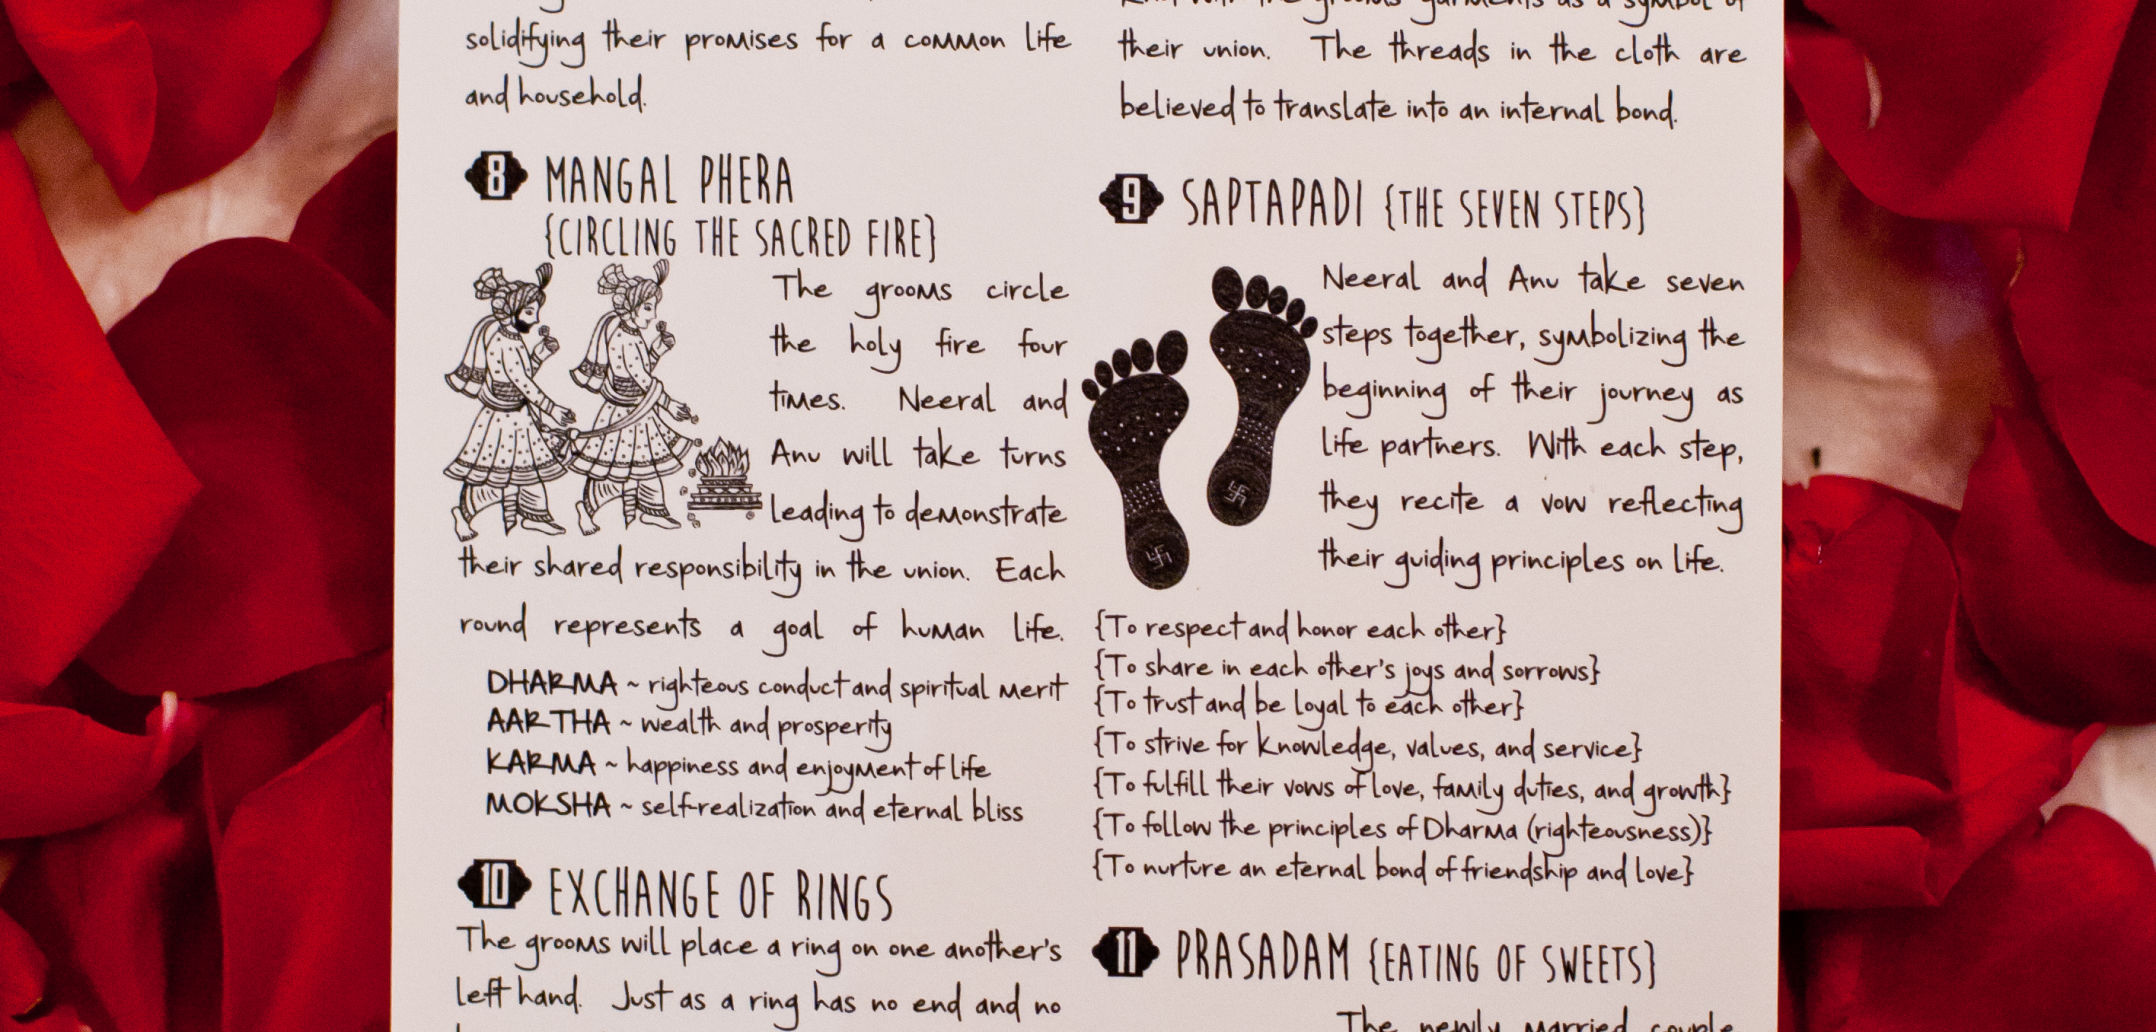 solidifying their promises for a common life
and household.
8 MANGAL PHERA
{CIRCLING THE SACRED FIRE}
The grooms circle
the holy fire four
times. Neeral and
Anu will take turns
leading to demonstrate
their shared responsibility in the union. Each
round represents a goal of human life.
DHARMA ~ righteous conduct and spiritual merit
AARTHA ~ wealth and prosperity
KARMA ~ happiness and enjoyment of life
MOKSHA ~ self-realization and eternal bliss
10 EXCHANGE OF RINGS
The grooms will place a ring on one another's
left hand. Just as a ring has no end and no
knit with the grooms garments as a symbol of
their union. The threads in the cloth are
believed to translate into an internal bond.
9 SAPTAPADI {THE SEVEN STEPS}
Neeral and Anu take seven
steps together, symbolizing the
beginning of their journey as
life partners. With each step,
they recite a vow reflecting
their guiding principles on life.
{To respect and honor each other}
{To share in each other's joys and sorrows}
{To trust and be loyal to each other}
{To strive for knowledge, values, and service}
{To fulfill their vows of love, family duties, and growth}
{To follow the principles of Dharma (righteousness)}
{To nurture an eternal bond of friendship and love}
11 PRASADAM {EATING OF SWEETS}
The newly married couple